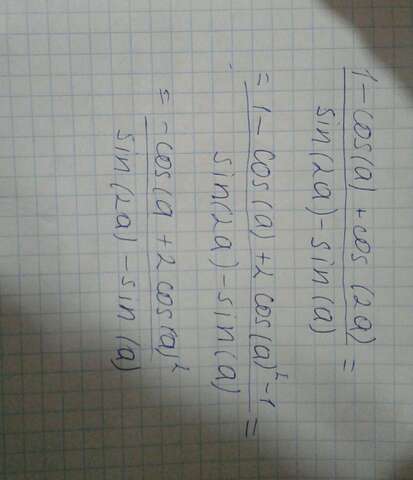 1 - cos(a) + cos(2a) =
sin(2a) - sin(a)
= 1 - cos(a) + 2 cos(a)² - 1 =
sin(2a) - sin(a)
= - cos(a + 2 cos(a)²
sin(2a) - sin(a)